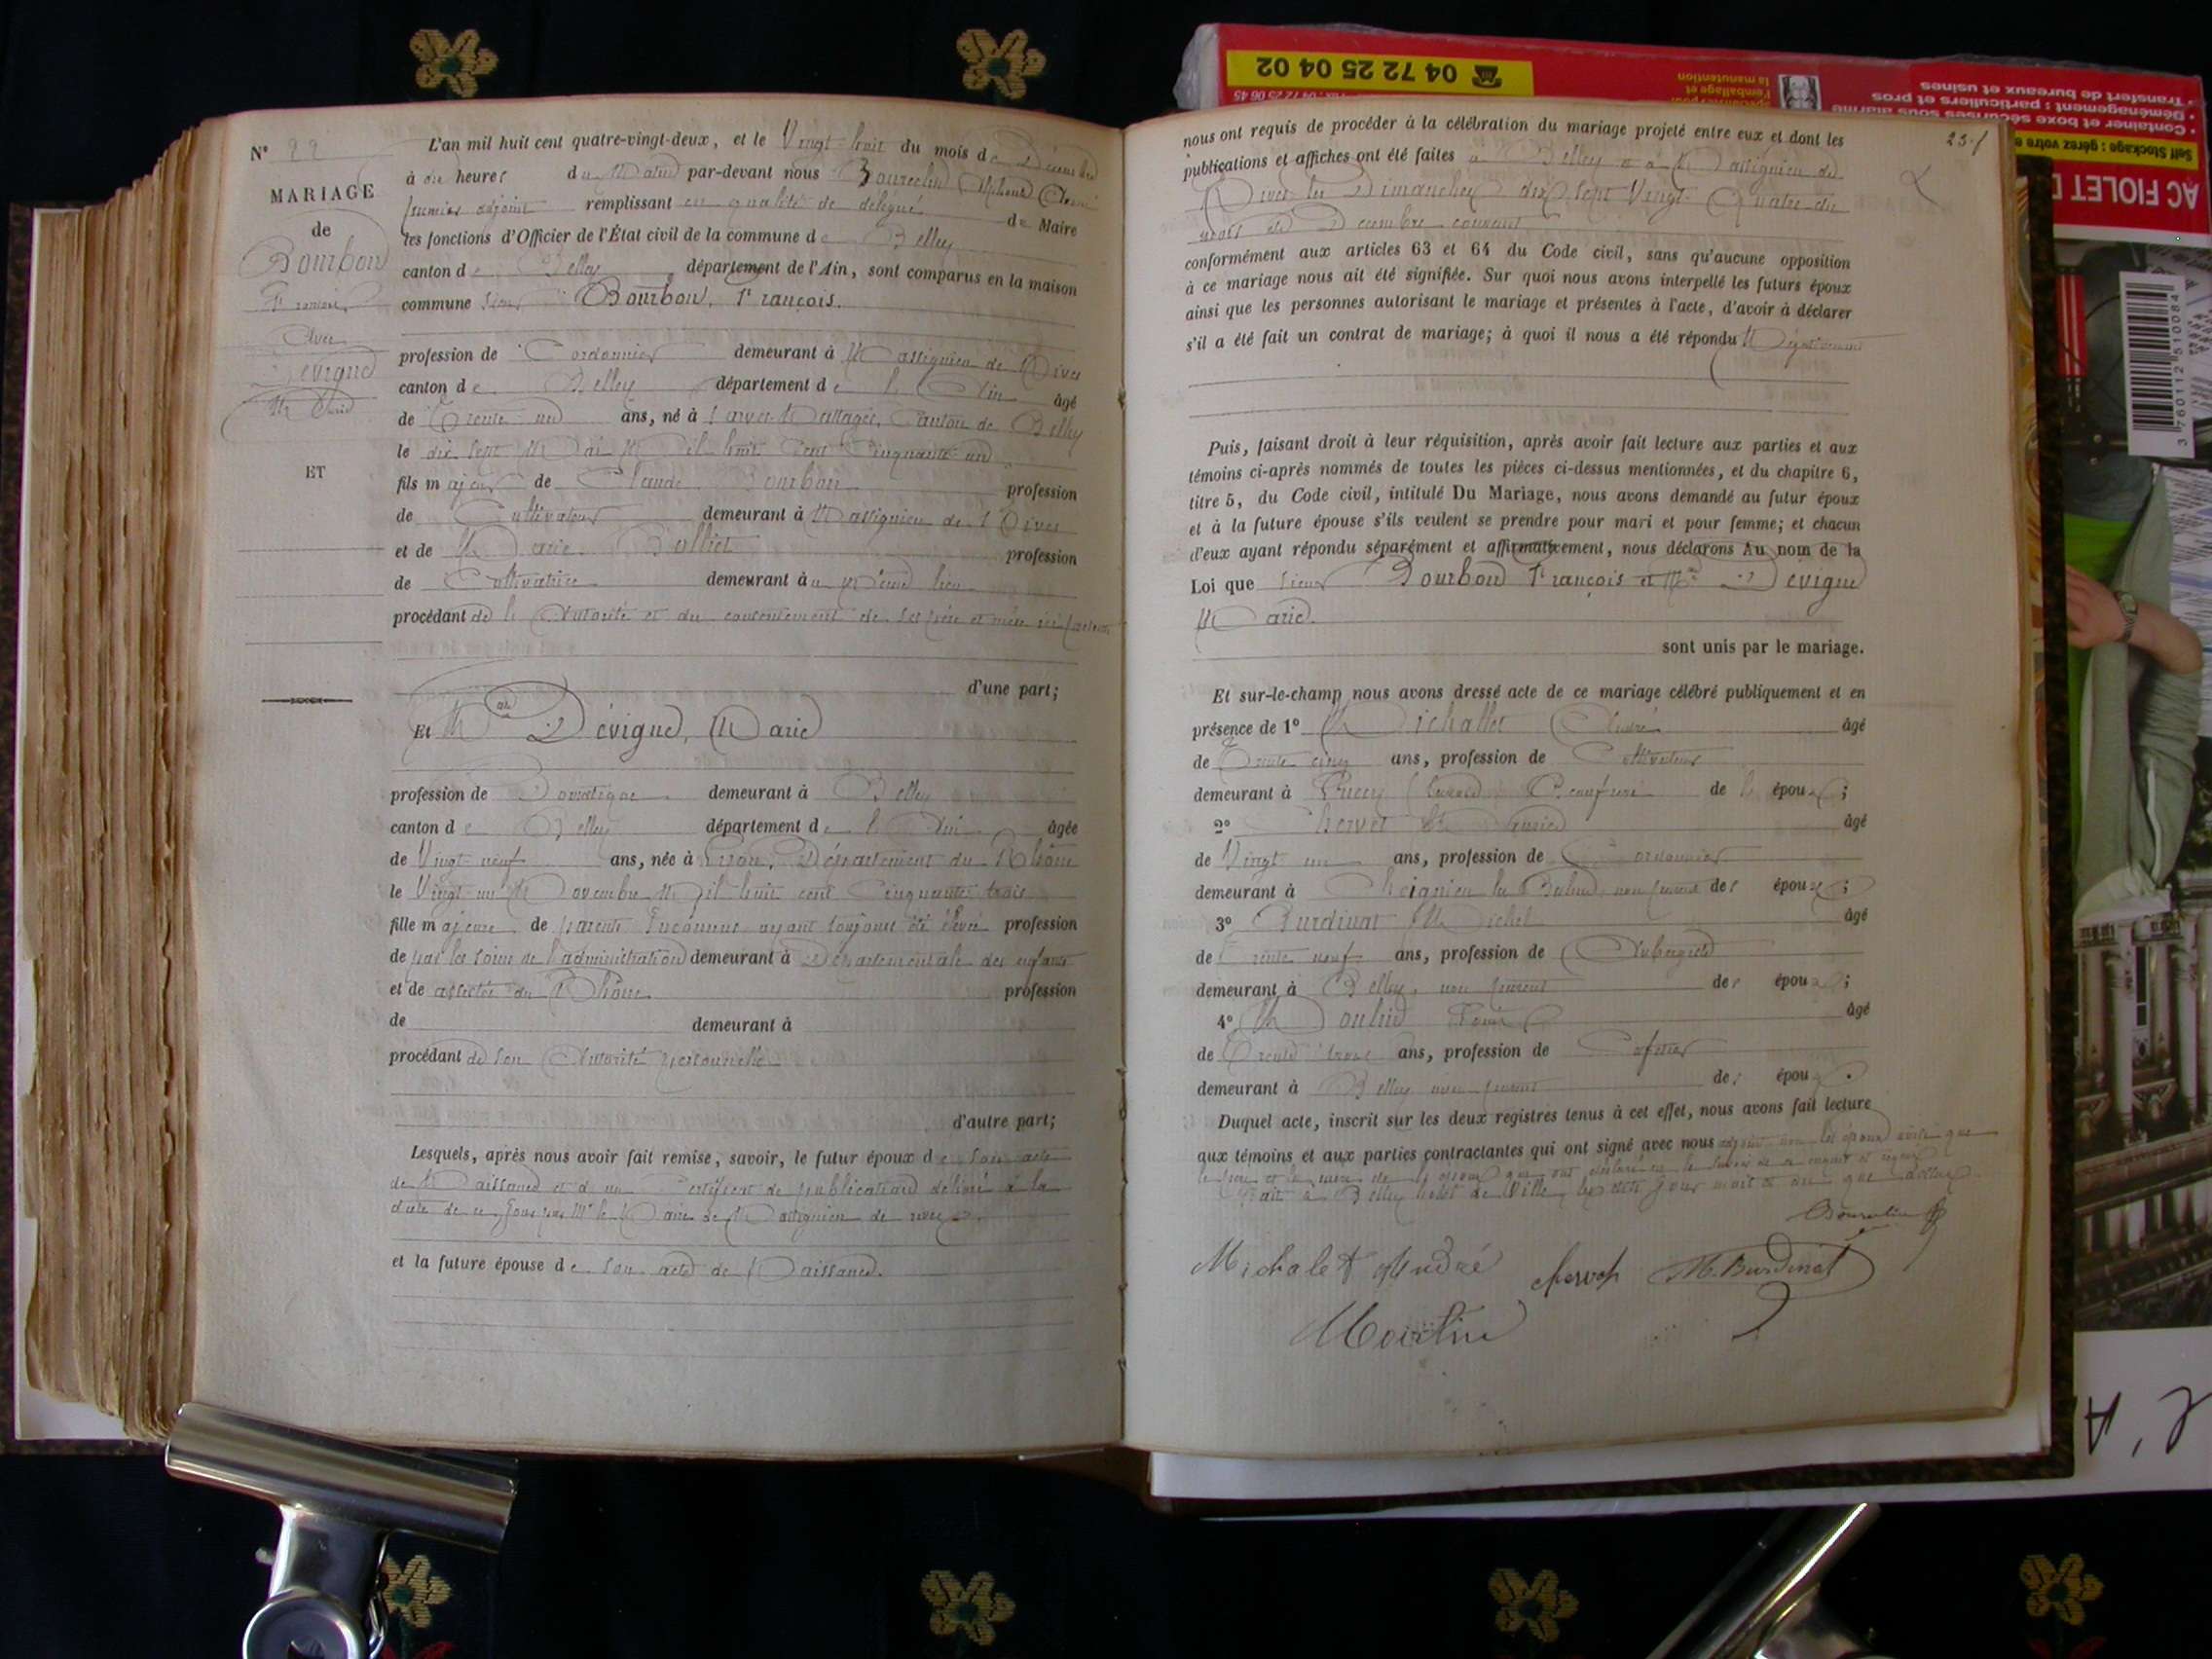 N° 22
MARIAGE
de
Bourbon
François
Avec
Devigne
Marie
ET
L'an mil huit cent quatre-vingt-deux, et le Vingt huit du mois de Décembre
à dix heures du Matin par-devant nous
premier adjoint remplissant en qualité de délégué de Maire
les fonctions d'Officier de l'État civil de la commune de Belley
canton de Belley département de l'Ain, sont comparus en la maison
commune sieur Bourbon, François.
profession de Cordonnier demeurant à Massignieu de Rives
canton de Belley département de l'Ain âgé
de Trente un ans, né à Parves Canton de Belley
le dix sept Mai Mil huit Cent Cinquante un
fils majeur de Claude Bourbon profession
de Cultivateur demeurant à Massignieu de Rives
et de Marie profession
de Cultivatrice demeurant au même lieu
procédant de l'Autorité et du consentement de ses père et mère ici présents
d'une part;
Et Mlle Dévigne, Marie
profession de Domestique demeurant à Belley
canton de Belley département de l'Ain âgée
de Vingt neuf ans, née à Lyon, Département du Rhône
le Vingt un Novembre Mil huit cent Cinquante trois
fille majeure de parents Inconnus ayant toujours été élevée profession
de par les soins de l'administration demeurant à Départementale des enfants
et de assistés du Rhône profession
de demeurant à
procédant de son Autorité personnelle
d'autre part;
Lesquels, après nous avoir fait remise, savoir, le futur époux de son acte
de Naissance et d'un Certificat de publications délivré à la
date de ce jour par Mr le Maire de Massignieu de rives.
et la future épouse de son acte de Naissance.
23.
nous ont requis de procéder à la célébration du mariage projeté entre eux et dont les
publications et affiches ont été faites à Belley et à Massignieu de
Rives les Dimanches dix sept Vingt Quatre du
mois de Décembre courant
conformément aux articles 63 et 64 du Code civil, sans qu'aucune opposition
à ce mariage nous ait été signifiée. Sur quoi nous avons interpellé les futurs époux
ainsi que les personnes autorisant le mariage et présentes à l'acte, d'avoir à déclarer
s'il a été fait un contrat de mariage; à quoi il nous a été répondu Négativement
Puis, faisant droit à leur réquisition, après avoir fait lecture aux parties et aux
témoins ci-après nommés de toutes les pièces ci-dessus mentionnées, et du chapitre 6,
titre 5, du Code civil, intitulé Du Mariage, nous avons demandé au futur époux
et à la future épouse s'ils veulent se prendre pour mari et pour femme; et chacun
d'eux ayant répondu séparément et affirmativement, nous déclarons Au nom de la
Loi que sieur Bourbon François et Mlle Dévigne
Marie.
sont unis par le mariage.
Et sur-le-champ nous avons dressé acte de ce mariage célébré publiquement et en
présence de 1° Michallet André âgé
de Trente cinq ans, profession de Cultivateur
demeurant à de l'époux;
2° âgé
de Vingt un ans, profession de Cordonnier
demeurant à non parent des époux;
3° Burdinat Michel âgé
de Trente neuf ans, profession de Aubergiste
demeurant à Belley, non parent des époux;
4° âgé
de Trente trois ans, profession de Cafetier
demeurant à Belley non parent des époux.
Duquel acte, inscrit sur les deux registres tenus à cet effet, nous avons fait lecture
aux témoins et aux parties contractantes qui ont signé avec nous
Fait à Belley hôtel de Ville, les dits jour mois et an que dessus
Michalet André
M. Burdinat
04 72 25 04 02
• Transfert de bureaux et usines
• Déménagement : particuliers et pros
l'emballage et
la manutention
AC FIOLET
3 760112 510084